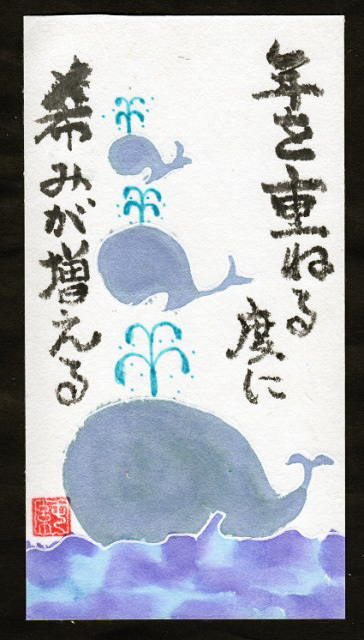 年を重ねる
度に
希みが増える